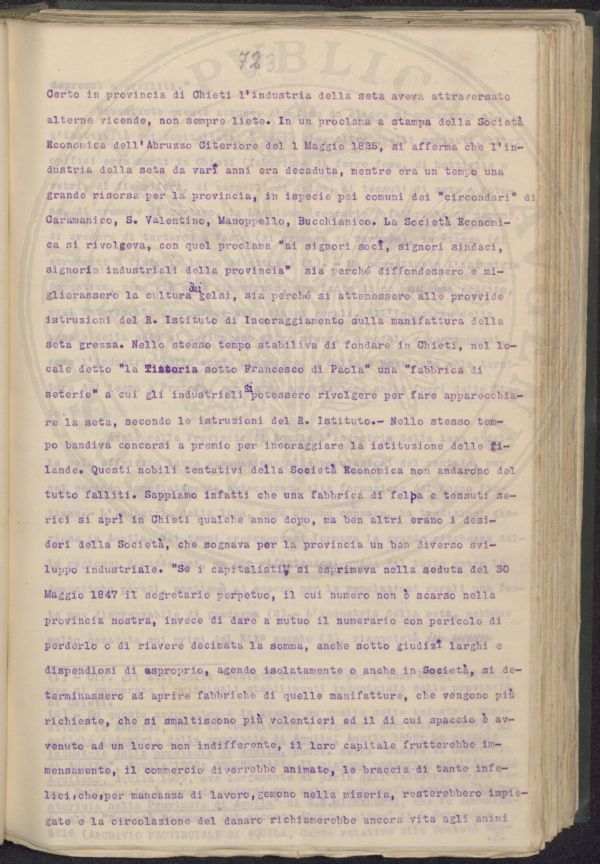 723
Certo in provincia di Chieti l'industria della seta aveva attraversato
alterne vicende, non sempre liete. In un proclama a stampa della Società
Economica dell'Abruzzo Citeriore del 1 Maggio 1835, si afferma che l'in-
dustria della seta da varî anni era decaduta, mentre era un tempo una
grande risorsa per la provincia, in ispecie pei comuni dei "circondari" di
Caramanico, S. Valentino, Manoppello, Bucchianico. La Società Economi-
ca si rivolgeva, con quel proclama "ai signori socî, signori sindaci,
signorin industriali della provincia" sia perché diffondessero e mi-
gliorassero la cultura dei gelsi, sia perché si attenessero alle provvide
istruzioni del R. Istituto di Incoraggiamento sulla manifattura della
seta grezza. Nello stesso tempo stabiliva di fondare in Chieti, nel lo-
cale detto "la Tintoria sotto Francesco di Paola" una "fabbrica di
seterie" a cui gli industriali si potessero rivolgere per fare apparecchia-
re la seta, secondo le istruzioni del R. Istituto.- Nello stesso tem-
po bandiva concorsi a premio per incoraggiare la istituzione delle fi-
lande. Questi nobili tentativi della Società Economica non andarono del
tutto falliti. Sappiamo infatti che una fabbrica di felpa e tessuti se-
rici si aprì in Chieti qualche anno dopo, ma ben altri erano i desi-
deri della Società, che sognava per la provincia un ben diverso svi-
luppo industriale. "Se i capitalisti", si esprimeva nella seduta del 30
Maggio 1847 il segretario perpetuo, il cui numero non è scarso nella
provincia nostra, invece di dare a mutuo il numerario con pericolo di
perderlo o di riavere decimata la somma, anche sotto giudizî larghi e
dispendiosi di esproprio, agendo isolatamente o anche in Società, si de-
terminassero ad aprire fabbriche di quelle manifatture, che vengono più
richieste, che si smaltiscono più volentieri ed il di cui spaccio è av-
venuto ad un lucro non indifferente, il loro capitale frutterebbe im-
mensamente, il commercio diverrebbe animato, le braccia di tante infe-
lici,che,per mancanza di lavoro,gemono nella miseria, resterebbero impie-
gate e la circolazione del danaro richiamerebbe ancora vita agli animi